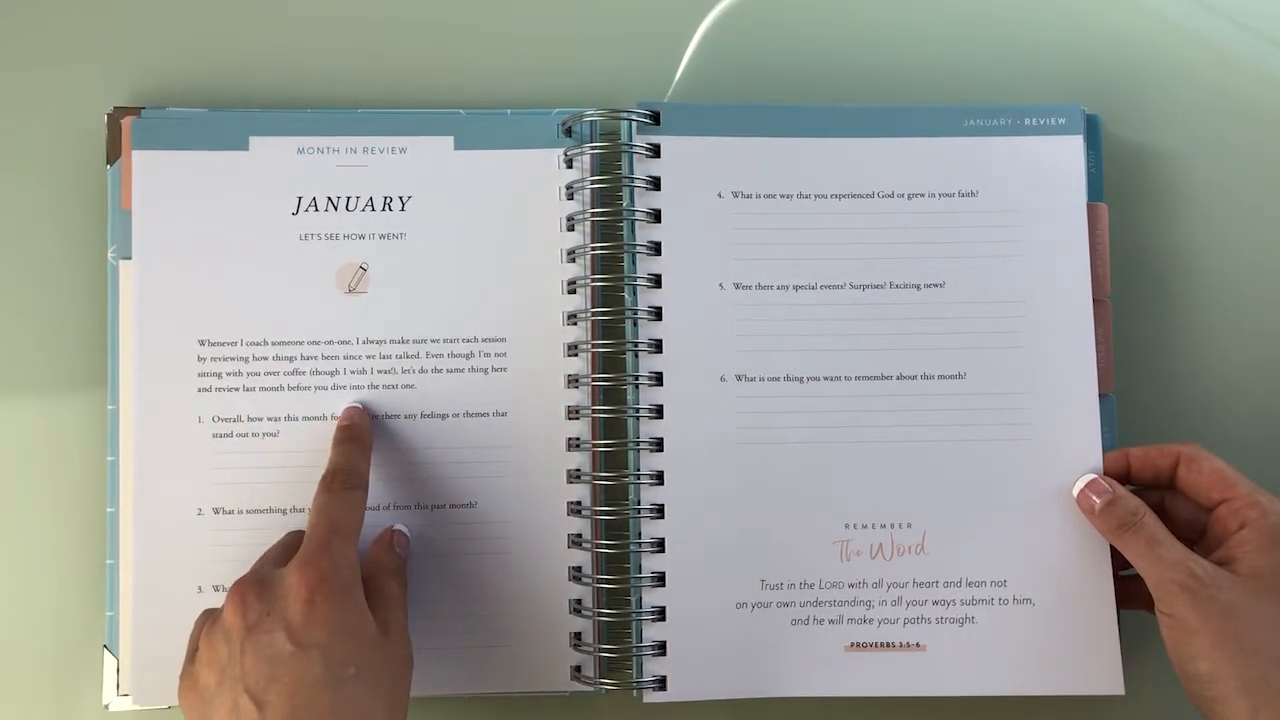 MONTH IN REVIEW
JANUARY
LET'S SEE HOW IT WENT!
Whenever I coach someone one-on-one, I always make sure we start each session
by reviewing how things have been since we last talked. Even though I'm not
sitting with you over coffee (though I wish I was!), let's do the same thing here
and review last month before you dive into the next one.
1. Overall, how was this month there any feelings or themes that
stand out to you?
2. What is something that of from this past month?
3.
JANUARY • REVIEW
4. What is one way that you experienced God or grew in your faith?
5. Were there any special events? Surprises? Exciting news?
6. What is one thing you want to remember about this month?
REMEMBER
The Word
Trust in the LORD with all your heart and lean not
on your own understanding; in all your ways submit to him,
and he will make your paths straight.
PROVERBS 3:5-6
JULY